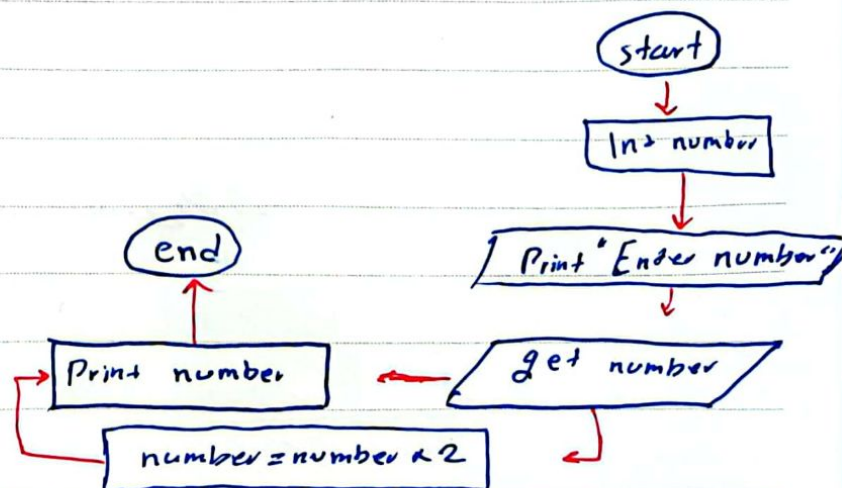 start
Int number
Print "Enter number"
get number
number = number * 2
Print number
end